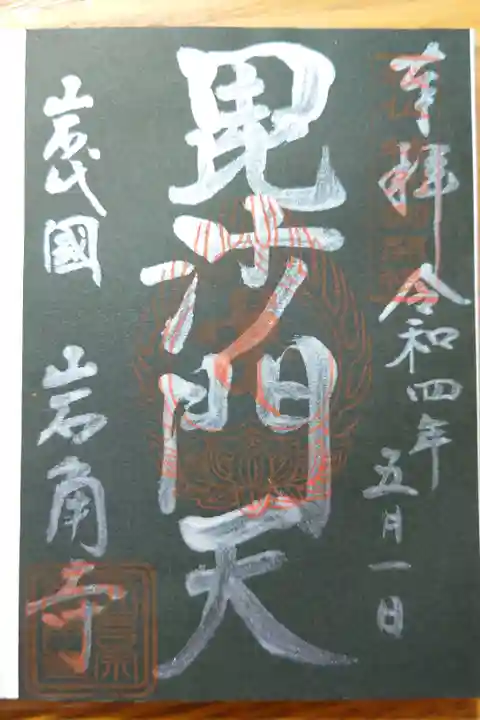 奉拝 令和四年 五月一日
毘沙門天
岩代國 岩角寺